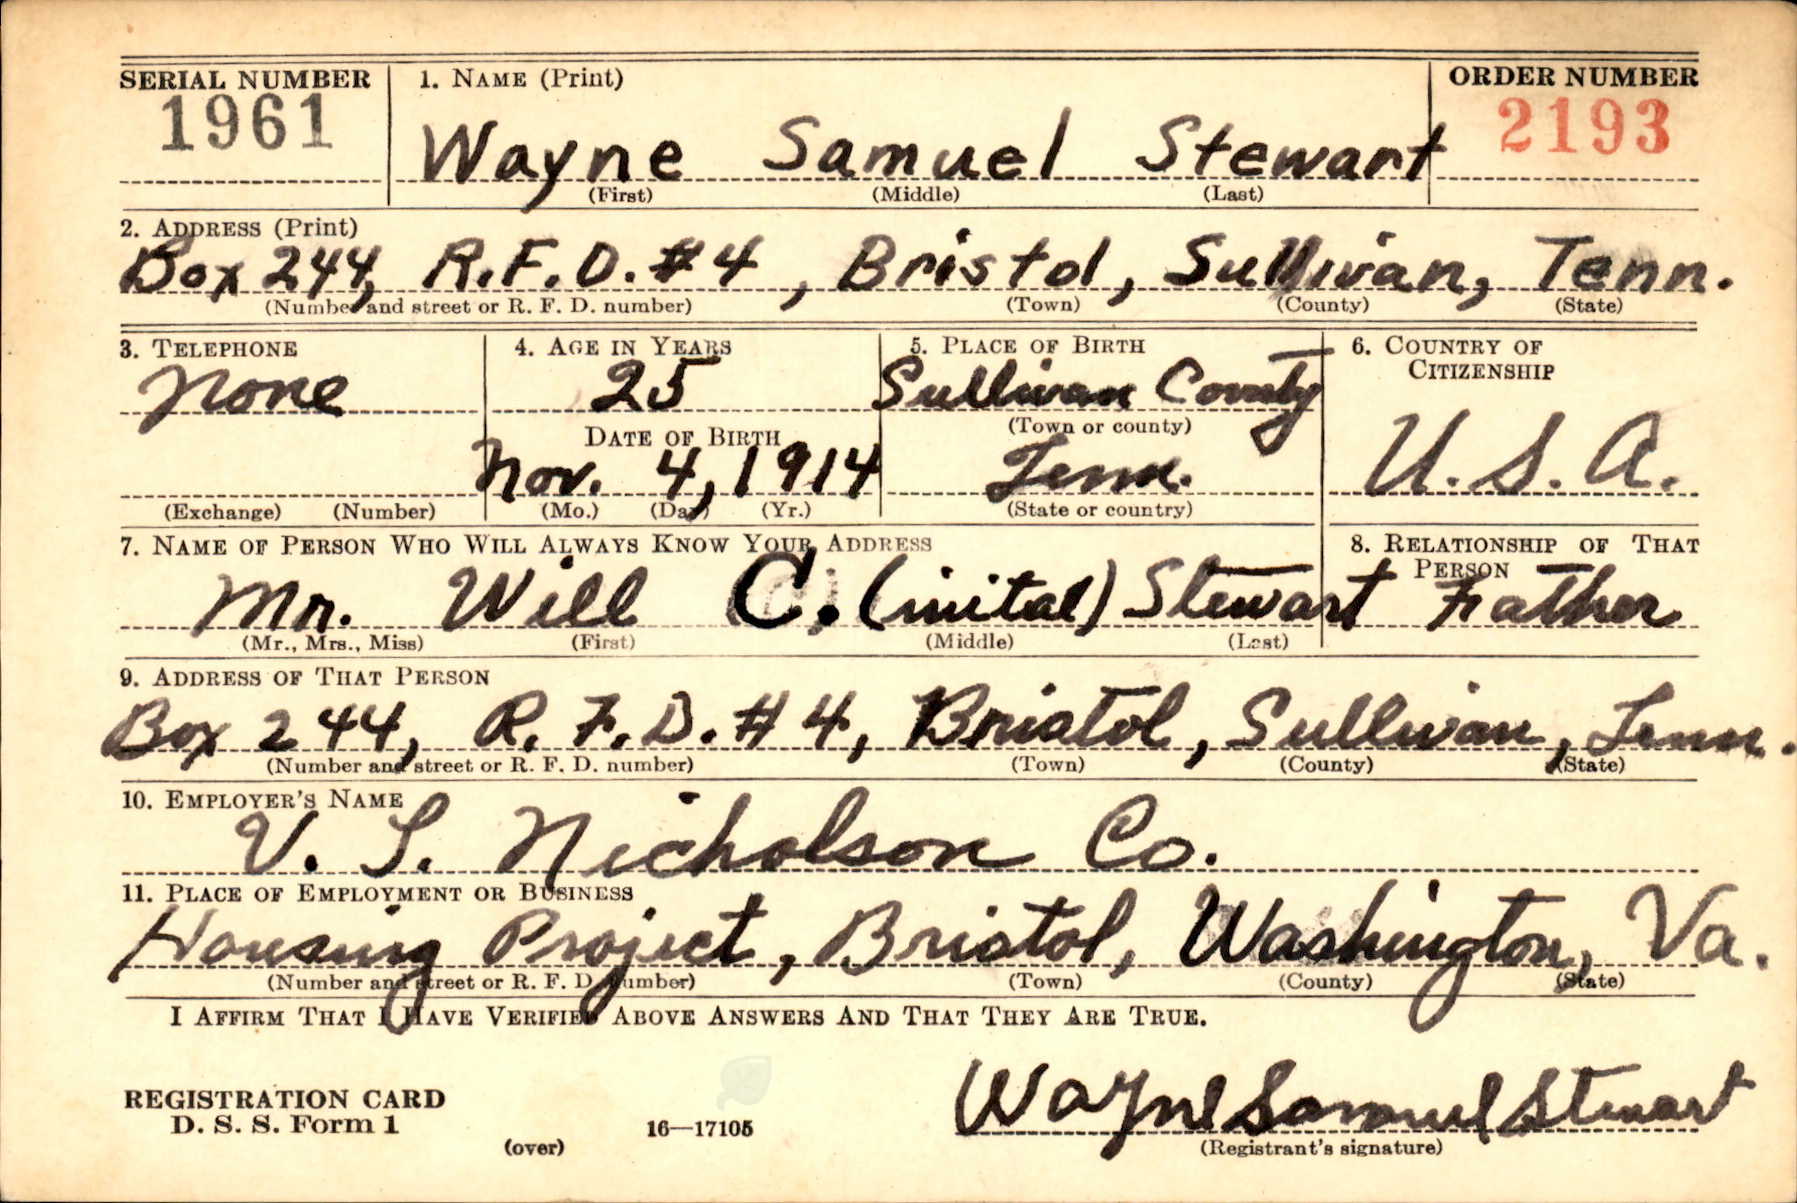 SERIAL NUMBER 1. NAME (Print) ORDER NUMBER
1961 Wayne Samuel Stewart 2193
(First) (Middle) (Last)
2. ADDRESS (Print)
Box 244, R.F.D. #4, Bristol, Sullivan, Tenn.
(Number and street or R. F. D. number) (Town) (County) (State)
3. TELEPHONE 4. AGE IN YEARS 5. PLACE OF BIRTH 6. COUNTRY OF
CITIZENSHIP
None 25 Sullivan County
(Town or county)
DATE OF BIRTH
Nov. 4, 1914 Tenn. U.S.A.
(Exchange) (Number) (Mo.) (Day) (Yr.) (State or country)
7. NAME OF PERSON WHO WILL ALWAYS KNOW YOUR ADDRESS 8. RELATIONSHIP OF THAT
PERSON
Mr. Will C. (inital) Stewart Father
(Mr., Mrs., Miss) (First) (Middle) (Last)
9. ADDRESS OF THAT PERSON
Box 244, R.F.D. #4, Bristol, Sullivan, Tenn.
(Number and street or R. F. D. number) (Town) (County) (State)
10. EMPLOYER'S NAME
V. L. Nicholson Co.
11. PLACE OF EMPLOYMENT OR BUSINESS
Housing Project, Bristol, Washington, Va.
(Number and street or R. F. D. number) (Town) (County) (State)
I AFFIRM THAT I HAVE VERIFIED ABOVE ANSWERS AND THAT THEY ARE TRUE.
REGISTRATION CARD
D. S. S. Form 1
(over) 16—17105
Wayne Samuel Stewart
(Registrant's signature)